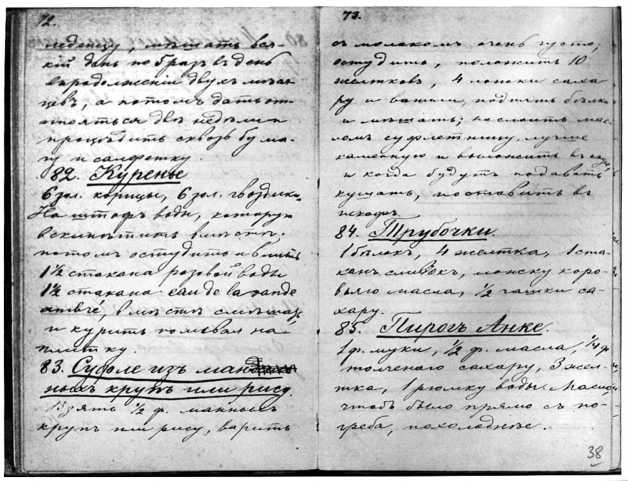 72.
леденцу, мешать вся-
кій день по 6 разъ въ день
въ продолженіи двухъ меся-
цевъ, а потомъ дать от
стояться две недели и
процедить сквозь бума-
гу и салфетку.
82. Куренье
6 зол. корицы, 6 зол. гвоздики.
На штофъ воды, которую
вскипятить вместе,
потомъ остудить и влить
1½ стакана розовой воды
1½ стакана eau de lavande
ambrée, вместе смешать
и курить поливая на
плитку.
83. Суфле изъ ман
ныхъ крупъ или рису.
Взять ½ ф. манныхъ
крупъ или рису, варить
73.
съ молокомъ очень густо;
остудить, положить 10
желтковъ, 4 ложки саха
ру и ванили, подбить белки
и мешать; намазать мас
ломъ суфлетницу, лучше
каменную и выложить въ нее,
и когда будутъ подавать
кушать, поставить въ
шкафъ.
84. Трубочки.
1 белокъ, 4 желтка, 1 ста
канъ сливокъ, ложку коро
вьяго масла, ½ чашки са-
хару.
85. Пирогъ Анке.
1 ф. муки, ½ ф. масла, ¼ ф
толченаго сахару, 3 жел-
тка, 1 рюмку воды. Масло,
чтобъ было прямо съ по-
греба, похолоднее.
38